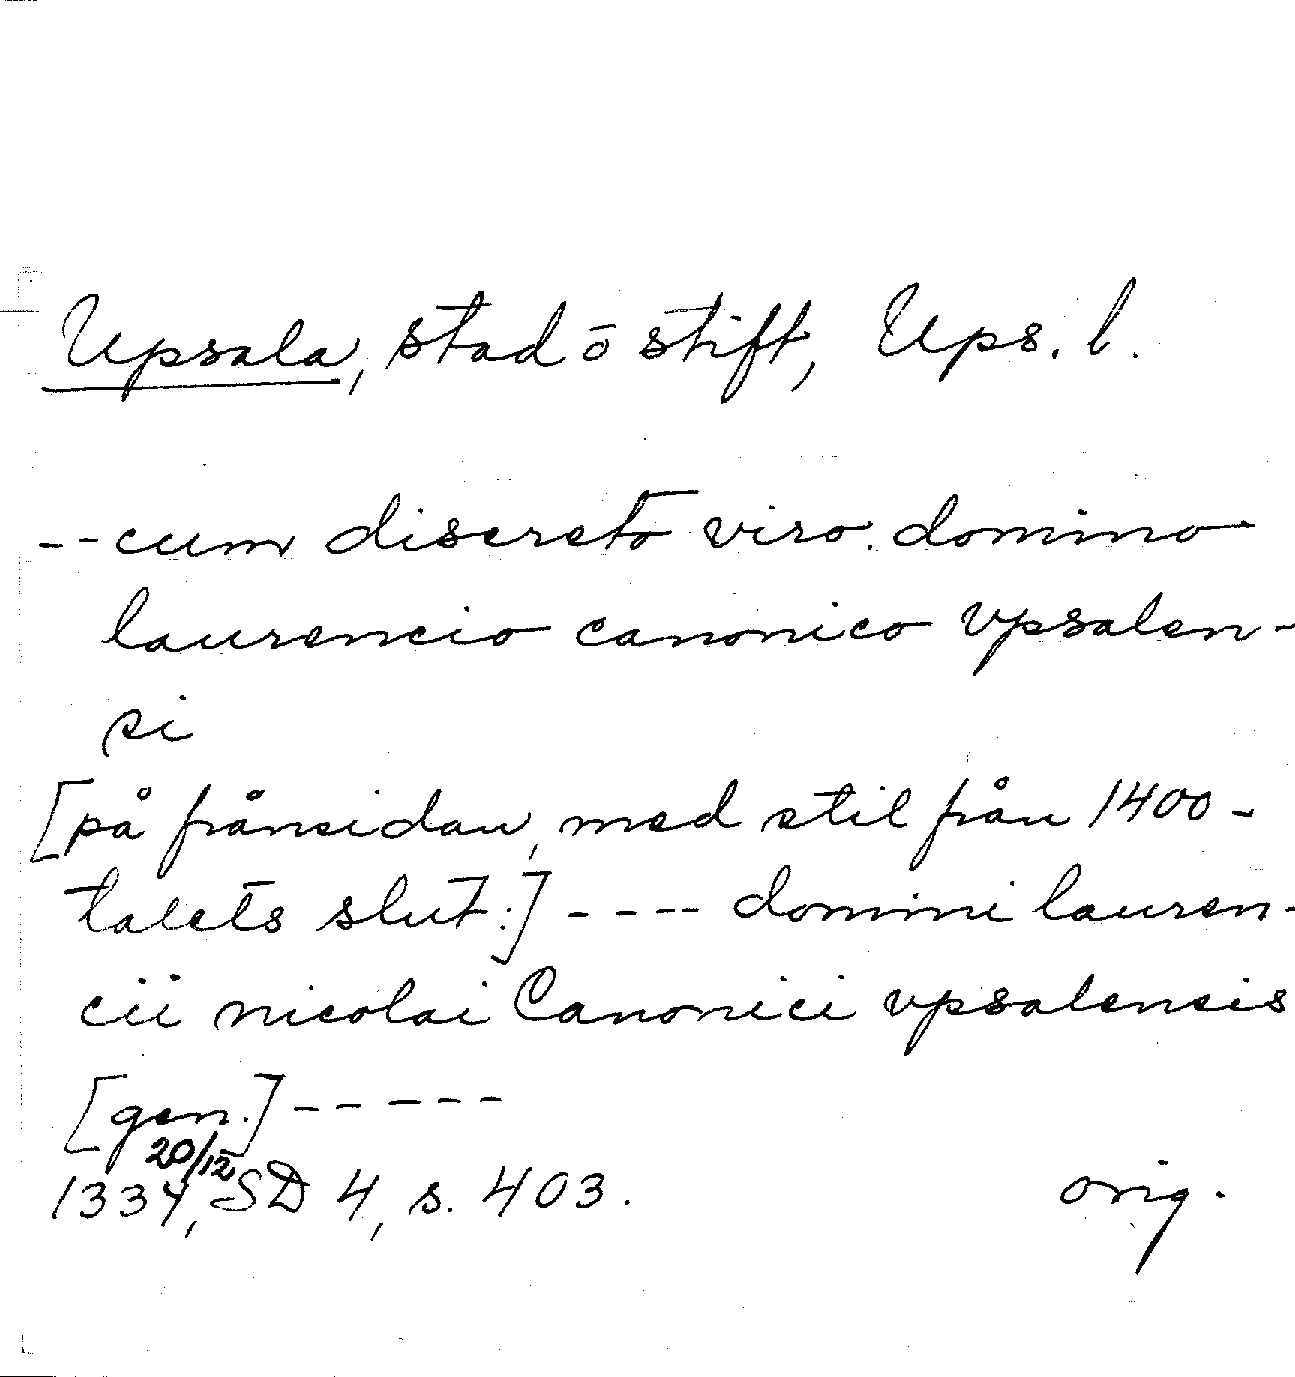 Upsala, stad ō stift, Ups. l.
-- cum discreto viro domino
laurencio canonico vpsalen-
si
[på frånsidan, med stil från 1400-
talets slut:] ---- domini lauren-
cii nicolai Canonici vpsalensis
[gen.] -----
20/12
1334, SD 4, s. 403. orig.